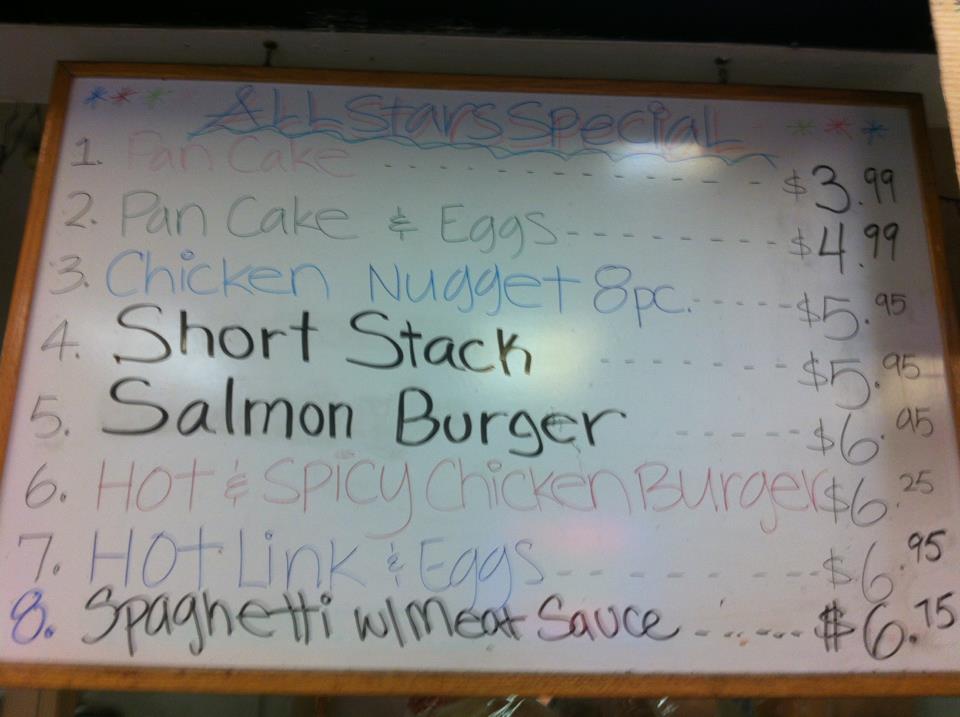 *** ALL Stars Special ***
1. Pan Cake - - - - - - - - - - - - $3.99
2. Pan Cake & Eggs - - - - - - - - - $4.99
3. Chicken Nugget 8pc. - - - - - $5.95
4. Short Stack - - - - - - - - - $5.95
5. Salmon Burger - - - - - - $6.95
6. Hot & Spicy Chicken Burger $6.25
7. Hot Link & Eggs - - - - - - - - - $6.95
8. Spaghetti w/Meat Sauce - - - - - - $6.75